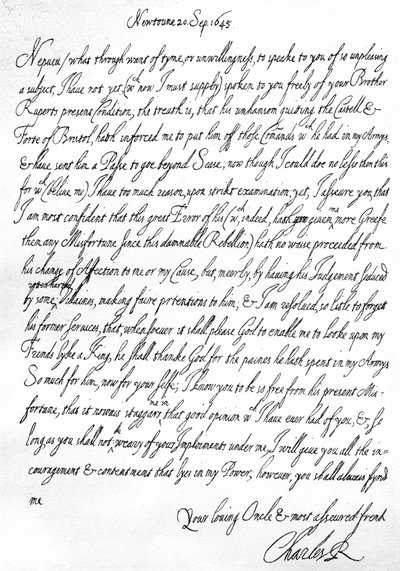 Newtoune 20. Sep. 1645
Nepueu / what through want of tyme, or unwillingness, to speake to you of so unpleasing
a subject, I have not yet (wch now I must supply) spoken to you freely of your Brother
Ruperts present Condition, the treuth is, that his unhansom quitting the Castell &
Forte of Bristol, hath inforced me to put him off those Com̄ands wch he had in my Armys,
& have sent him a Passe to goe beyond Seas; now though I could doe no less then this,
for wch (beliue me) I have too much reason, upon strikt examination; yet, I asseure you, that
I am most confident that this great Error of his (wch, indeed, hath given me more Greefe
then any Misfortune since this damnable Rebellion) hath no waise proceeded from
his change of Affection to me or my Cause, but, meerly, by having his Judgement seduced
by some rotten harted Villaines, making faire pretentions to him; & I am resolved so litle to forget
his former Seruices, that, when soever it shall please God to enable me to looke upon my
Frends lyke a King, he shall thanke God for the paines he hath spent in my Armys.
So much for him, now for your selfe; I know you to be so free from his present Mis-
fortune, that it nowais staggers me in that good opinion wch I have ever had of you, &, so
long as you shall not be weary of your Imploiments under me, I will geve you all the in-
couragement & contentment that lyes in my Power; however, you shall always fynd
me
Your loving Oncle & most asseured frend
Charles R